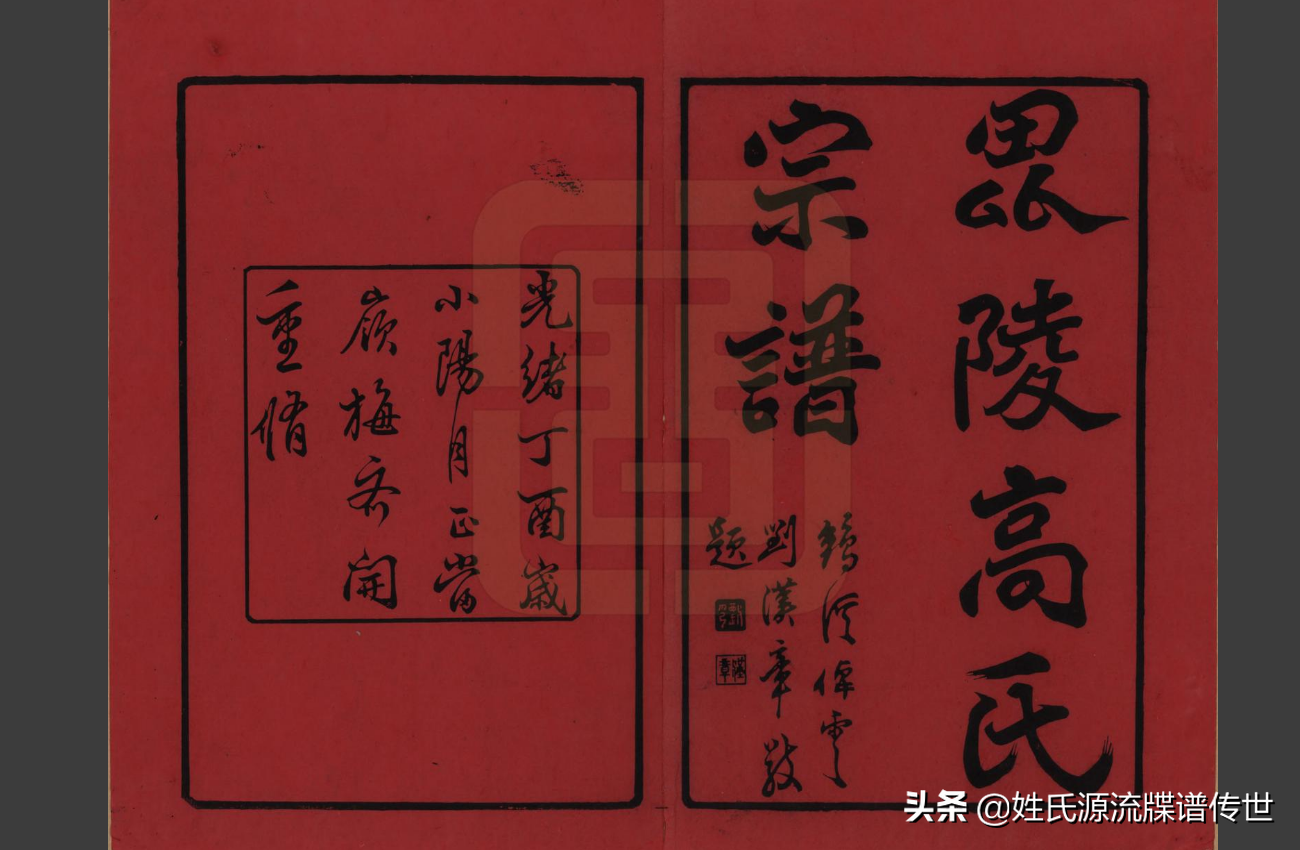 毘陵高氏
宗譜
倬雲
劉漢章敬
題
漢章
光緒丁酉歲
小陽月正當
嶺梅齊開
重脩
头条 @姓氏源流牒谱传世